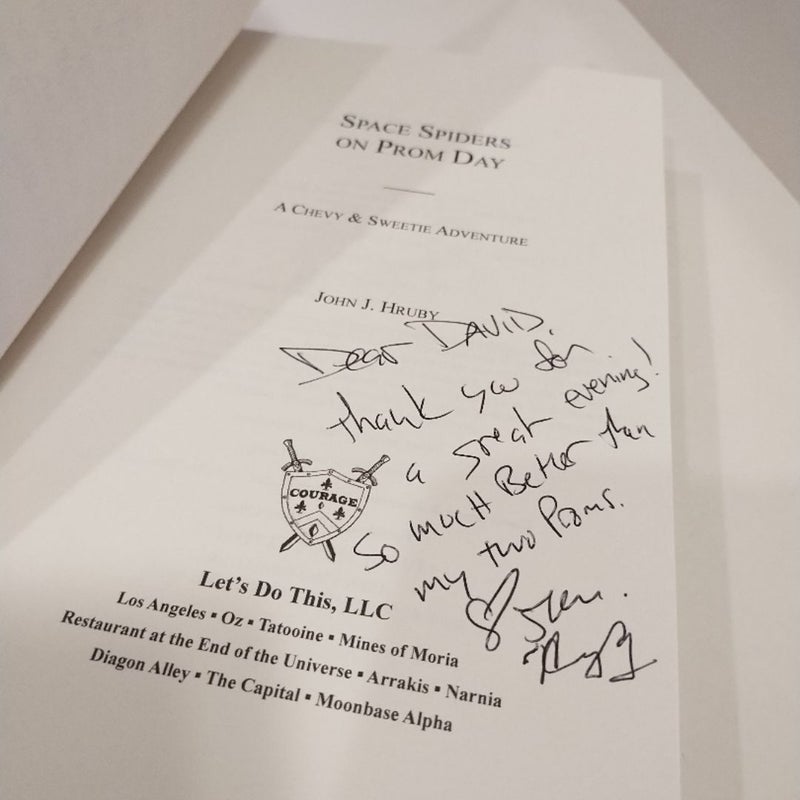 SPACE SPIDERS
ON PROM DAY
A CHEVY & SWEETIE ADVENTURE
JOHN J. HRUBY
Dear DAVID,
thank you for
a great evening!
So mucH Better than
my two Proms.
COURAGE
Let's Do This, LLC
Los Angeles ▪ Oz ▪ Tatooine ▪ Mines of Moria
Restaurant at the End of the Universe ▪ Arrakis ▪ Narnia
Diagon Alley ▪ The Capital ▪ Moonbase Alpha